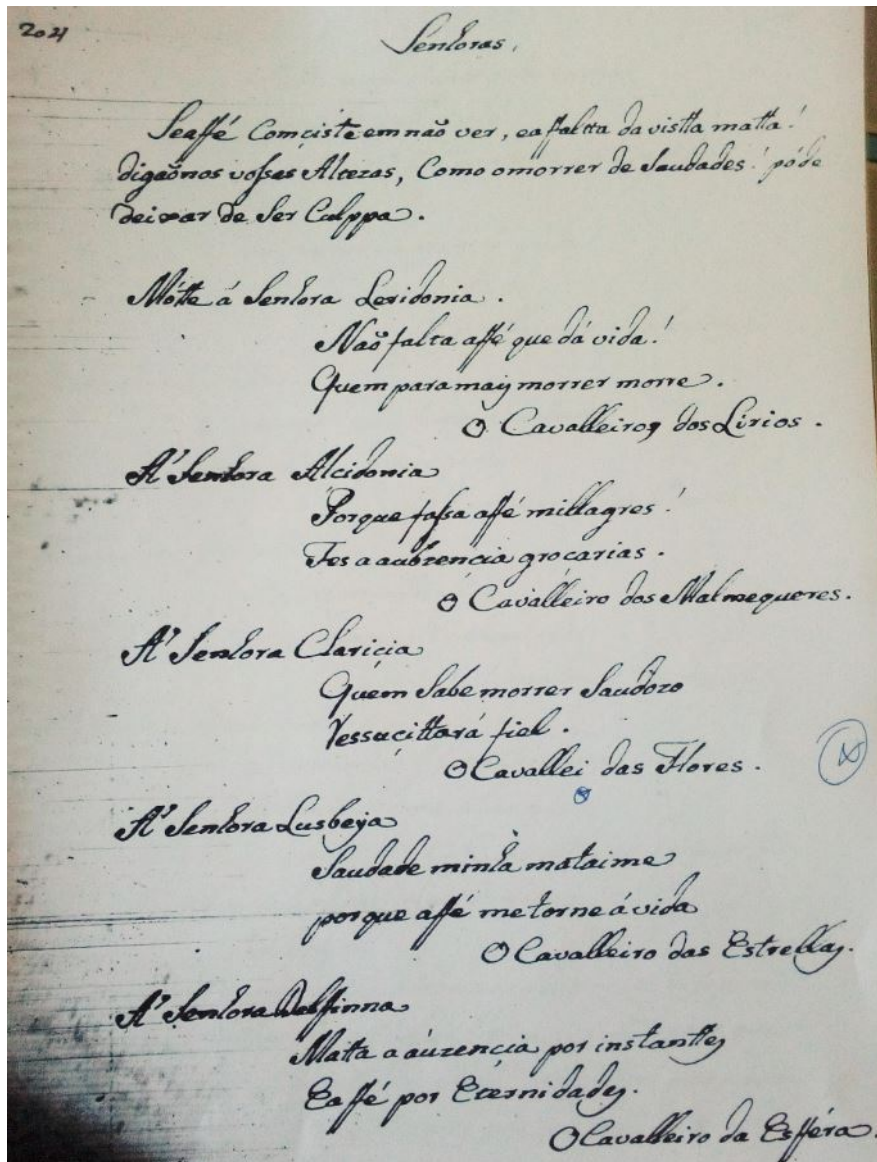 204
Senhoras,
Seaffé Comçiste em não ver, ea ffaltta da vistta matta!
digaõnos vossas Altezas, Como omorrer de Saudades! póde
deixar de Ser Culppa.
Mótte á Senhora Leridonia.
Naõ falta affé que dá vida!
Quem para mais morrer morre.
O Cavalleiro dos Lirios.
A' Senhora Alcidonia
Porque fassa affé millagres!
Fes a auzencia grocarias.
O Cavalleiro dos Malmequeres.
A' Senhora Claricia
Quem Sabe morrer Saudozo
Ressucittará fiel.
O Cavallei das Flores.
A' Senhora Lusbeya
Saudade minha mataime
porque affé metorne á vida
O Cavalleiro das Estrellas.
A' Senhora Delffinna
Matta a auzencia por instanttes
Ea ffé por Eternidades.
O Cavalleiro da Esfféra.